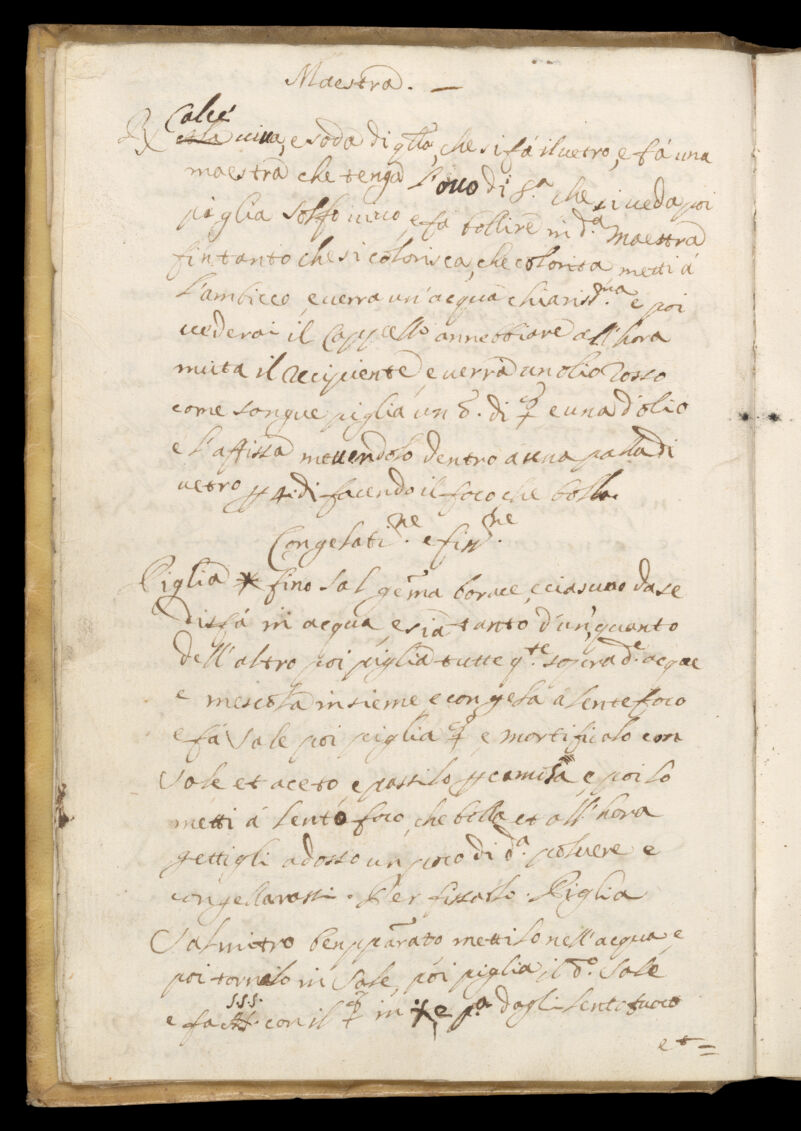 Maestra. —
℞ Calce viva, e soda di q.lla, che si fá il vetro, e fá una
maestra che tenga l'ovo di s.a che si veda poi
piglia solfo vivo, e fa bollire in d.a Maestra
fin tanto che si colorisca, che colorita metti á
L'ambicco, e verra un'acqua chiariss.ma e poi
vederai il Cappello annebbiare all'hora
muta il recipiente, e verra un olio rosso
come sangue piglia un ☿ e una d'olio
e l'affissa mettendolo dentro a una palla di
vetro 4. dì facendo il foco che bolla.
Congelati.ne e fiss.ne
Piglia * fino sal gem̃a borace, e ciascuno da se
disfá in acqua, e sia tanto d'un, quanto
dell'altro poi piglia tutte q.te sopra d.e acque
e mescola insieme e congela á lente foco
e fá sale poi piglia ☿ e mortificalo con
Sale et aceto, e passilo camisa, e poi lo
metti á lento foco, che bolla et all'hora
gettigli adosso un poco di d.a polvere e
congellarassi. Per fissarlo. Piglia
Salnitro ben pp̃arato mettilo nell'acqua, e
poi tornelo in Sale, poi piglia il d.o Sale
e fa SSS. con il ☿ in dagli lento fuoco
et=